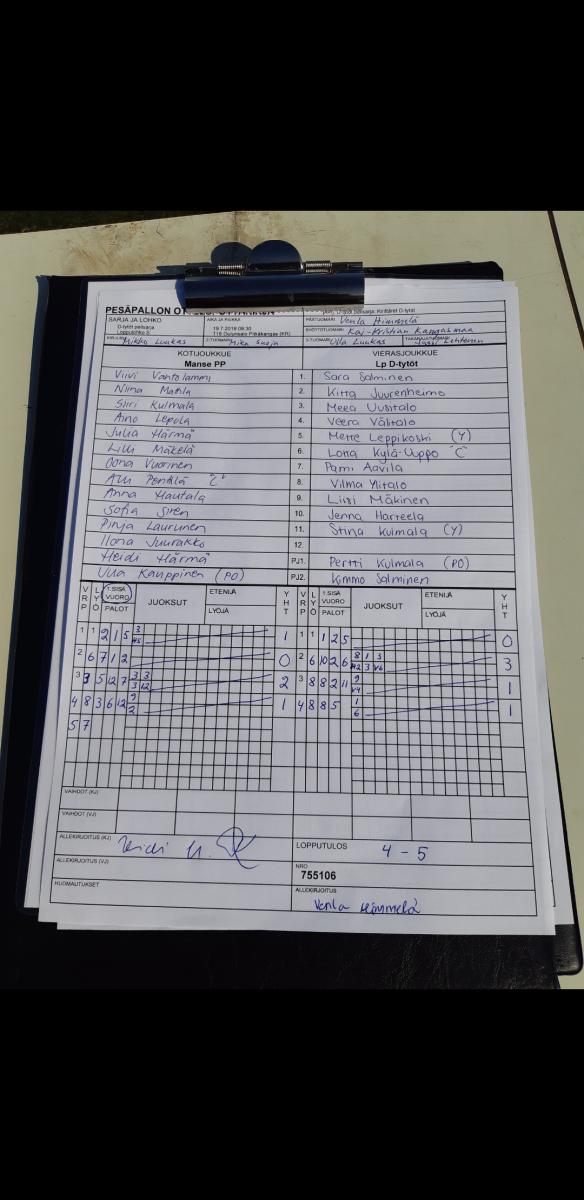 PESÄPALLON
D-tytöt pelisarja: Kiritähdet D-tytöt
SARJA JA LOHKO
D-tytöt pelisarja
Loppulohko 5
AIKA JA PAIKKA
19.7.2019 09:30
116 Oulunsalo Pitkäkangas (KR)
PÄÄTUOMARI Venla Himmelä
SYÖTTÖTUOMARI Kai-Kristian Kangasmaa
KIRJURI Mikko Luukas
2-TUOMARI Mika Suoja
3-TUOMARI Ulla Luukas
TAKARAJATUOMARI Jussi Lehtonen
KOTIJOUKKUE
Manse PP
VIERASJOUKKUE
Lp D-tytöt
Viivi Vahtolammi 1. Sara Salminen
Niina Mattila 2. Kitta Juurenheimo
Siiri Kulmala 3. Meea Uusitalo
Aino Lepola 4. Veera Välitalo
Julia Härmä 5. Mette Leppikoski (Y)
Lilli Mäkelä 6. Lotta Kylä-Uuppo "C"
Oona Vuorinen 7. Pami Aavila
Anu Penttilä "C" 8. Vilma Yitalo
Anna Hautala 9. Liisi Mäkinen
Sofia Siren 10. Jenna Harteela
Pinja Laurunen 11. Stina Kulmala (Y)
Ilona Juurakko 12.
Heidi Härmä PJ1. Pertti Kulmala (PO)
Kauppinen (PO) PJ2. Kimmo Salminen
VRP LYÖ 1.SISÄ VUORO PALOT JUOKSUT ETENIJÄ LYÖJÄ YHT VRP LYÖ 1.SISÄ VUORO PALOT JUOKSUT ETENIJÄ LYÖJÄ YHT
1 1 2 1 5 3 1 1 1 1 2 5 0
2 6 7 1 2 0 2 6 10 2 6 8 1 5 3
3 3 5 12 7 3 3 3 12 2 3 8 8 2 11 9 1
4 8 3 6 12 9 2 1 4 8 8 5 1 6 1
5 7
VAIHDOT (KJ)
VAIHDOT (VJ)
ALLEKIRJOITUS (KJ)
LOPPUTULOS 4 - 5
ALLEKIRJOITUS (VJ)
NRO
755106
HUOMAUTUKSET
ALLEKIRJOITUS
Venla Himmelä